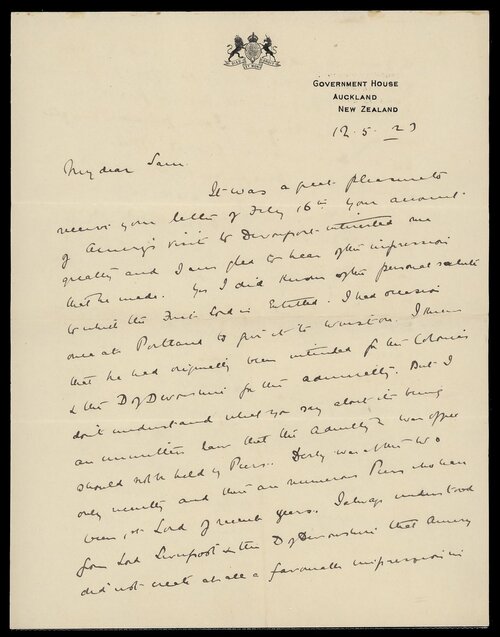 GOVERNMENT HOUSE
AUCKLAND
NEW ZEALAND
12.5.23
My dear Sam
It was a great pleasure to
receive your letter of Feby 16th Your account
of Amery's visit to Devonport interested me
greatly and I am glad to hear of the impression
that he made. Yes I did know of the personal salute
to which the First Lord is entitled. I had occasion
once at Portland to give it to Winston. I knew
that he had originally been intended for the Colonies
& the D of Devonshire for the Admiralty. But I
don't understand what you say about its being
an unwritten law that the Admlty
should not be held by Peers. Derby was offered
only recently and there are numerous Peers who have
been 1st Lord of recent years. I always understood
from Lord Liverpool & the D of Devonshire that Amery
did not create at all a favourable impression in